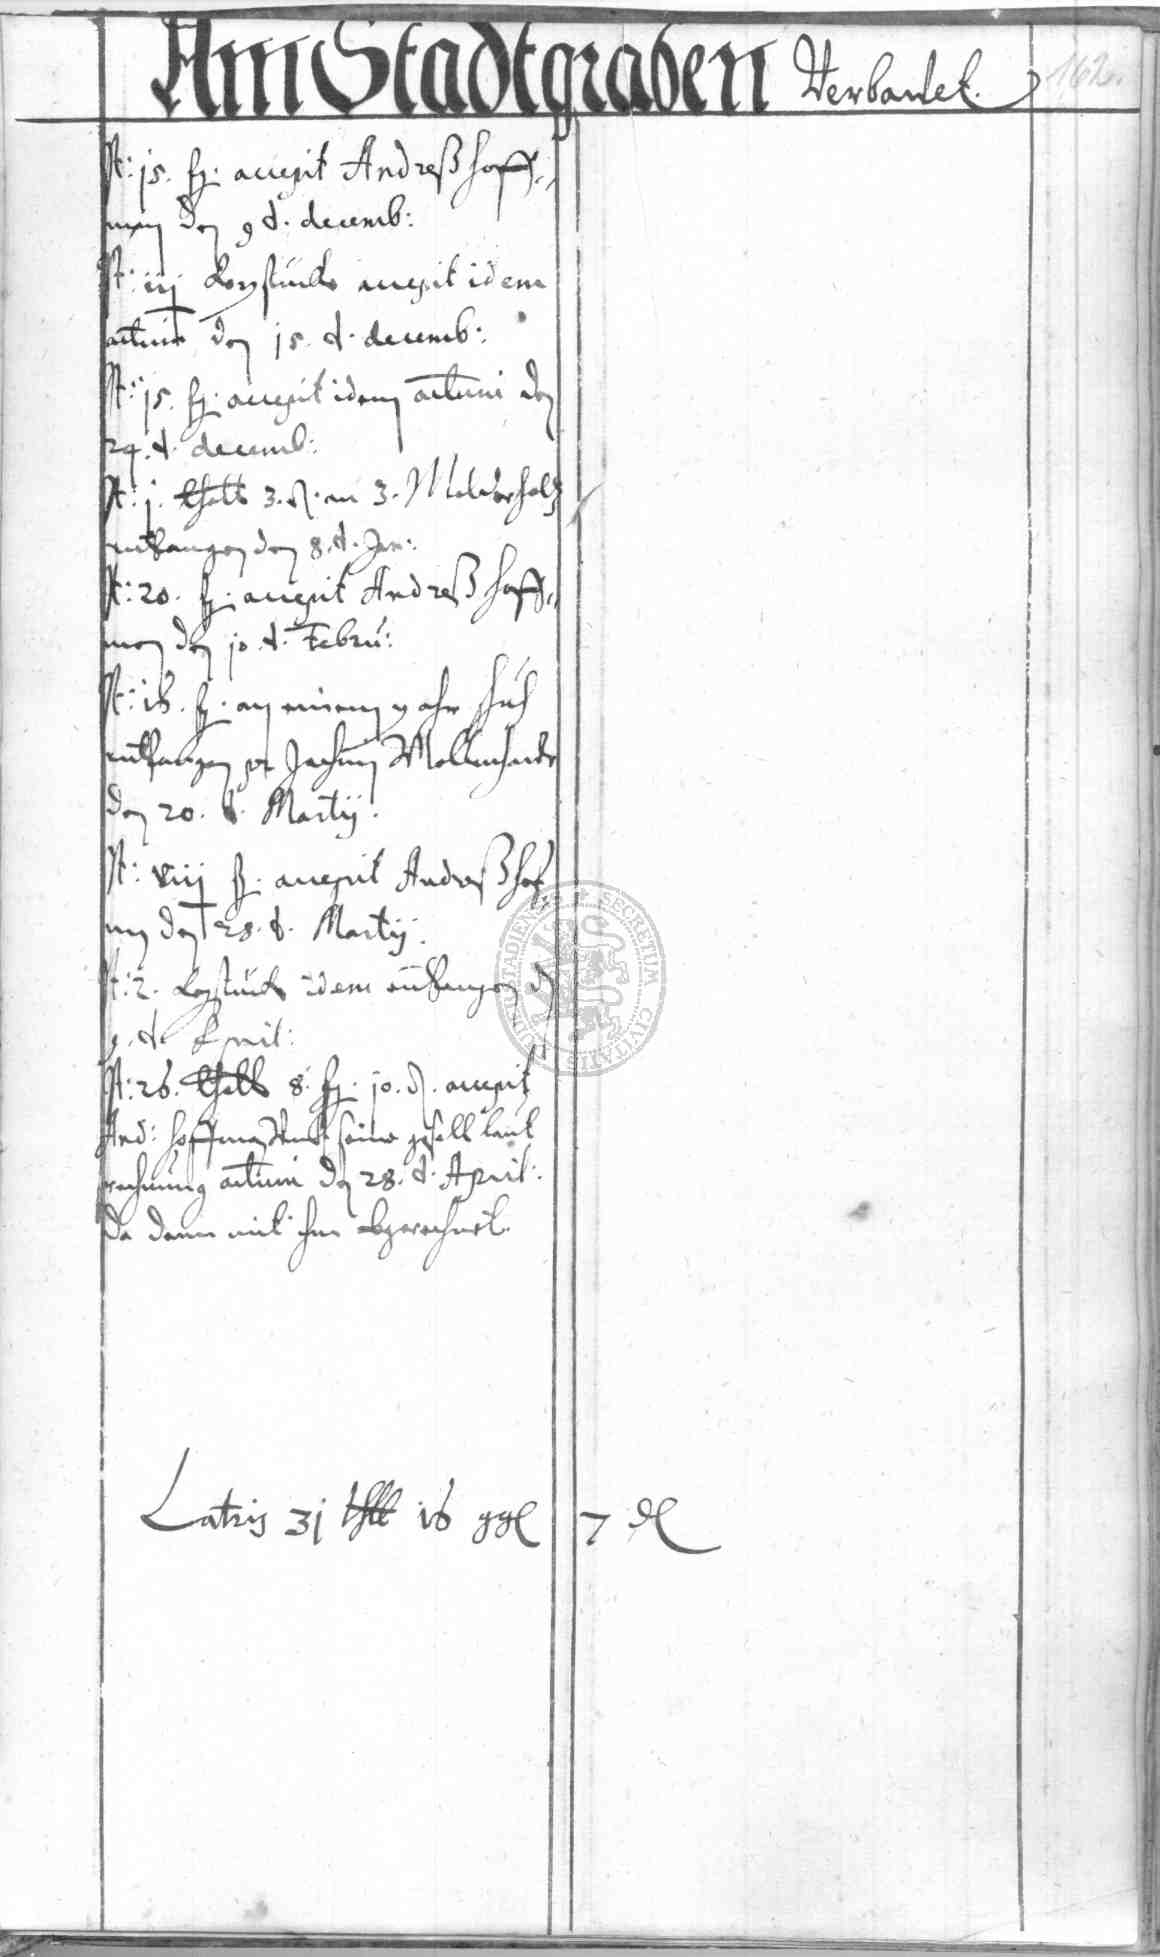 Am Stadtgraben Verbawet.
162.
It: 15. fg. accepit Andreß Hoff=
man den 9 t. decemb:
It: iij Ortstücke accepit idem
actum den 15. t. decemb:
It: 15. fg. accepit idem actum den
29. t. decemb:
It: j. thall 3. d. an 3. Malderholtz
entfangen den 8. t. Jan:
It: 20. fg. accepit Andreß Hoff=
man den 10. t. Febru:
It: 16. fg. an einem par schuh
entfangen Jochim
den 20. t. Martij.
It: viij fg. accepit Andreß Hof=
man den 28. t. Martij.
It: 2. Ortstück idem entfangen d
9. t. April:
It: 26. thall 8. fg. 10. d. accepit
And: Hoffman seine gesell laut
rechnung actum den 28. t. April:
da dann mit ihm abgerechnet.
SECRETUM CIVITATIS
Latris 31 thll 16 ggl 7 dl